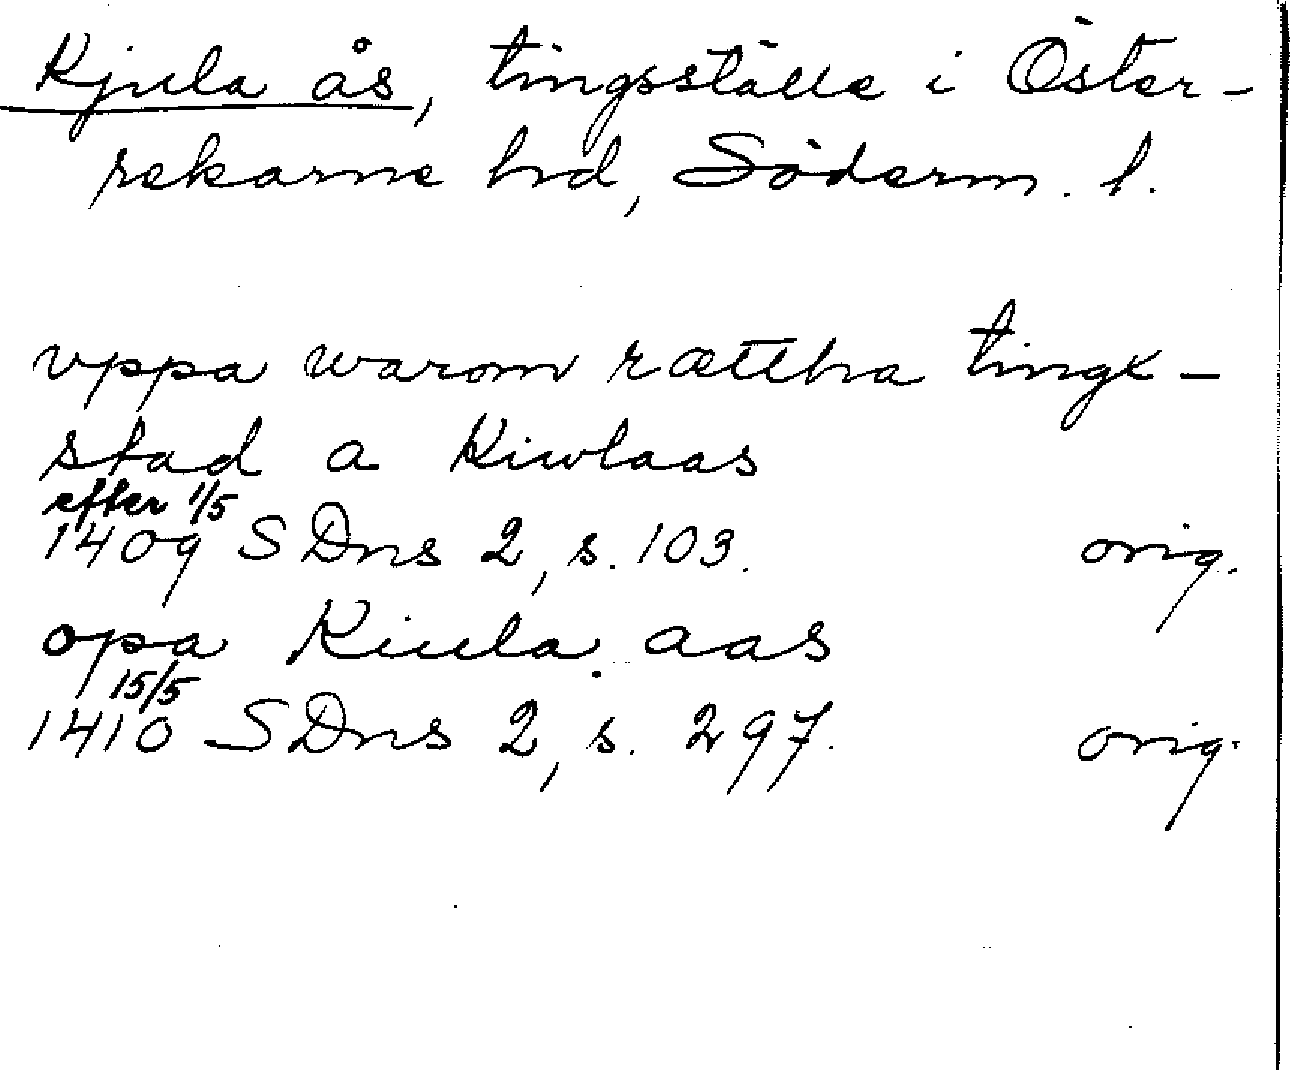 Kjula ås, tingsställe i Öster-
rekarne hd, Söderm. l.
vppa warom rættha tingx-
stad a Kiwlaas
efter 1/5
1409 SDns 2, s. 103. orig.
opa Kiula aas
15/5
1410 SDns 2, s. 297. orig.